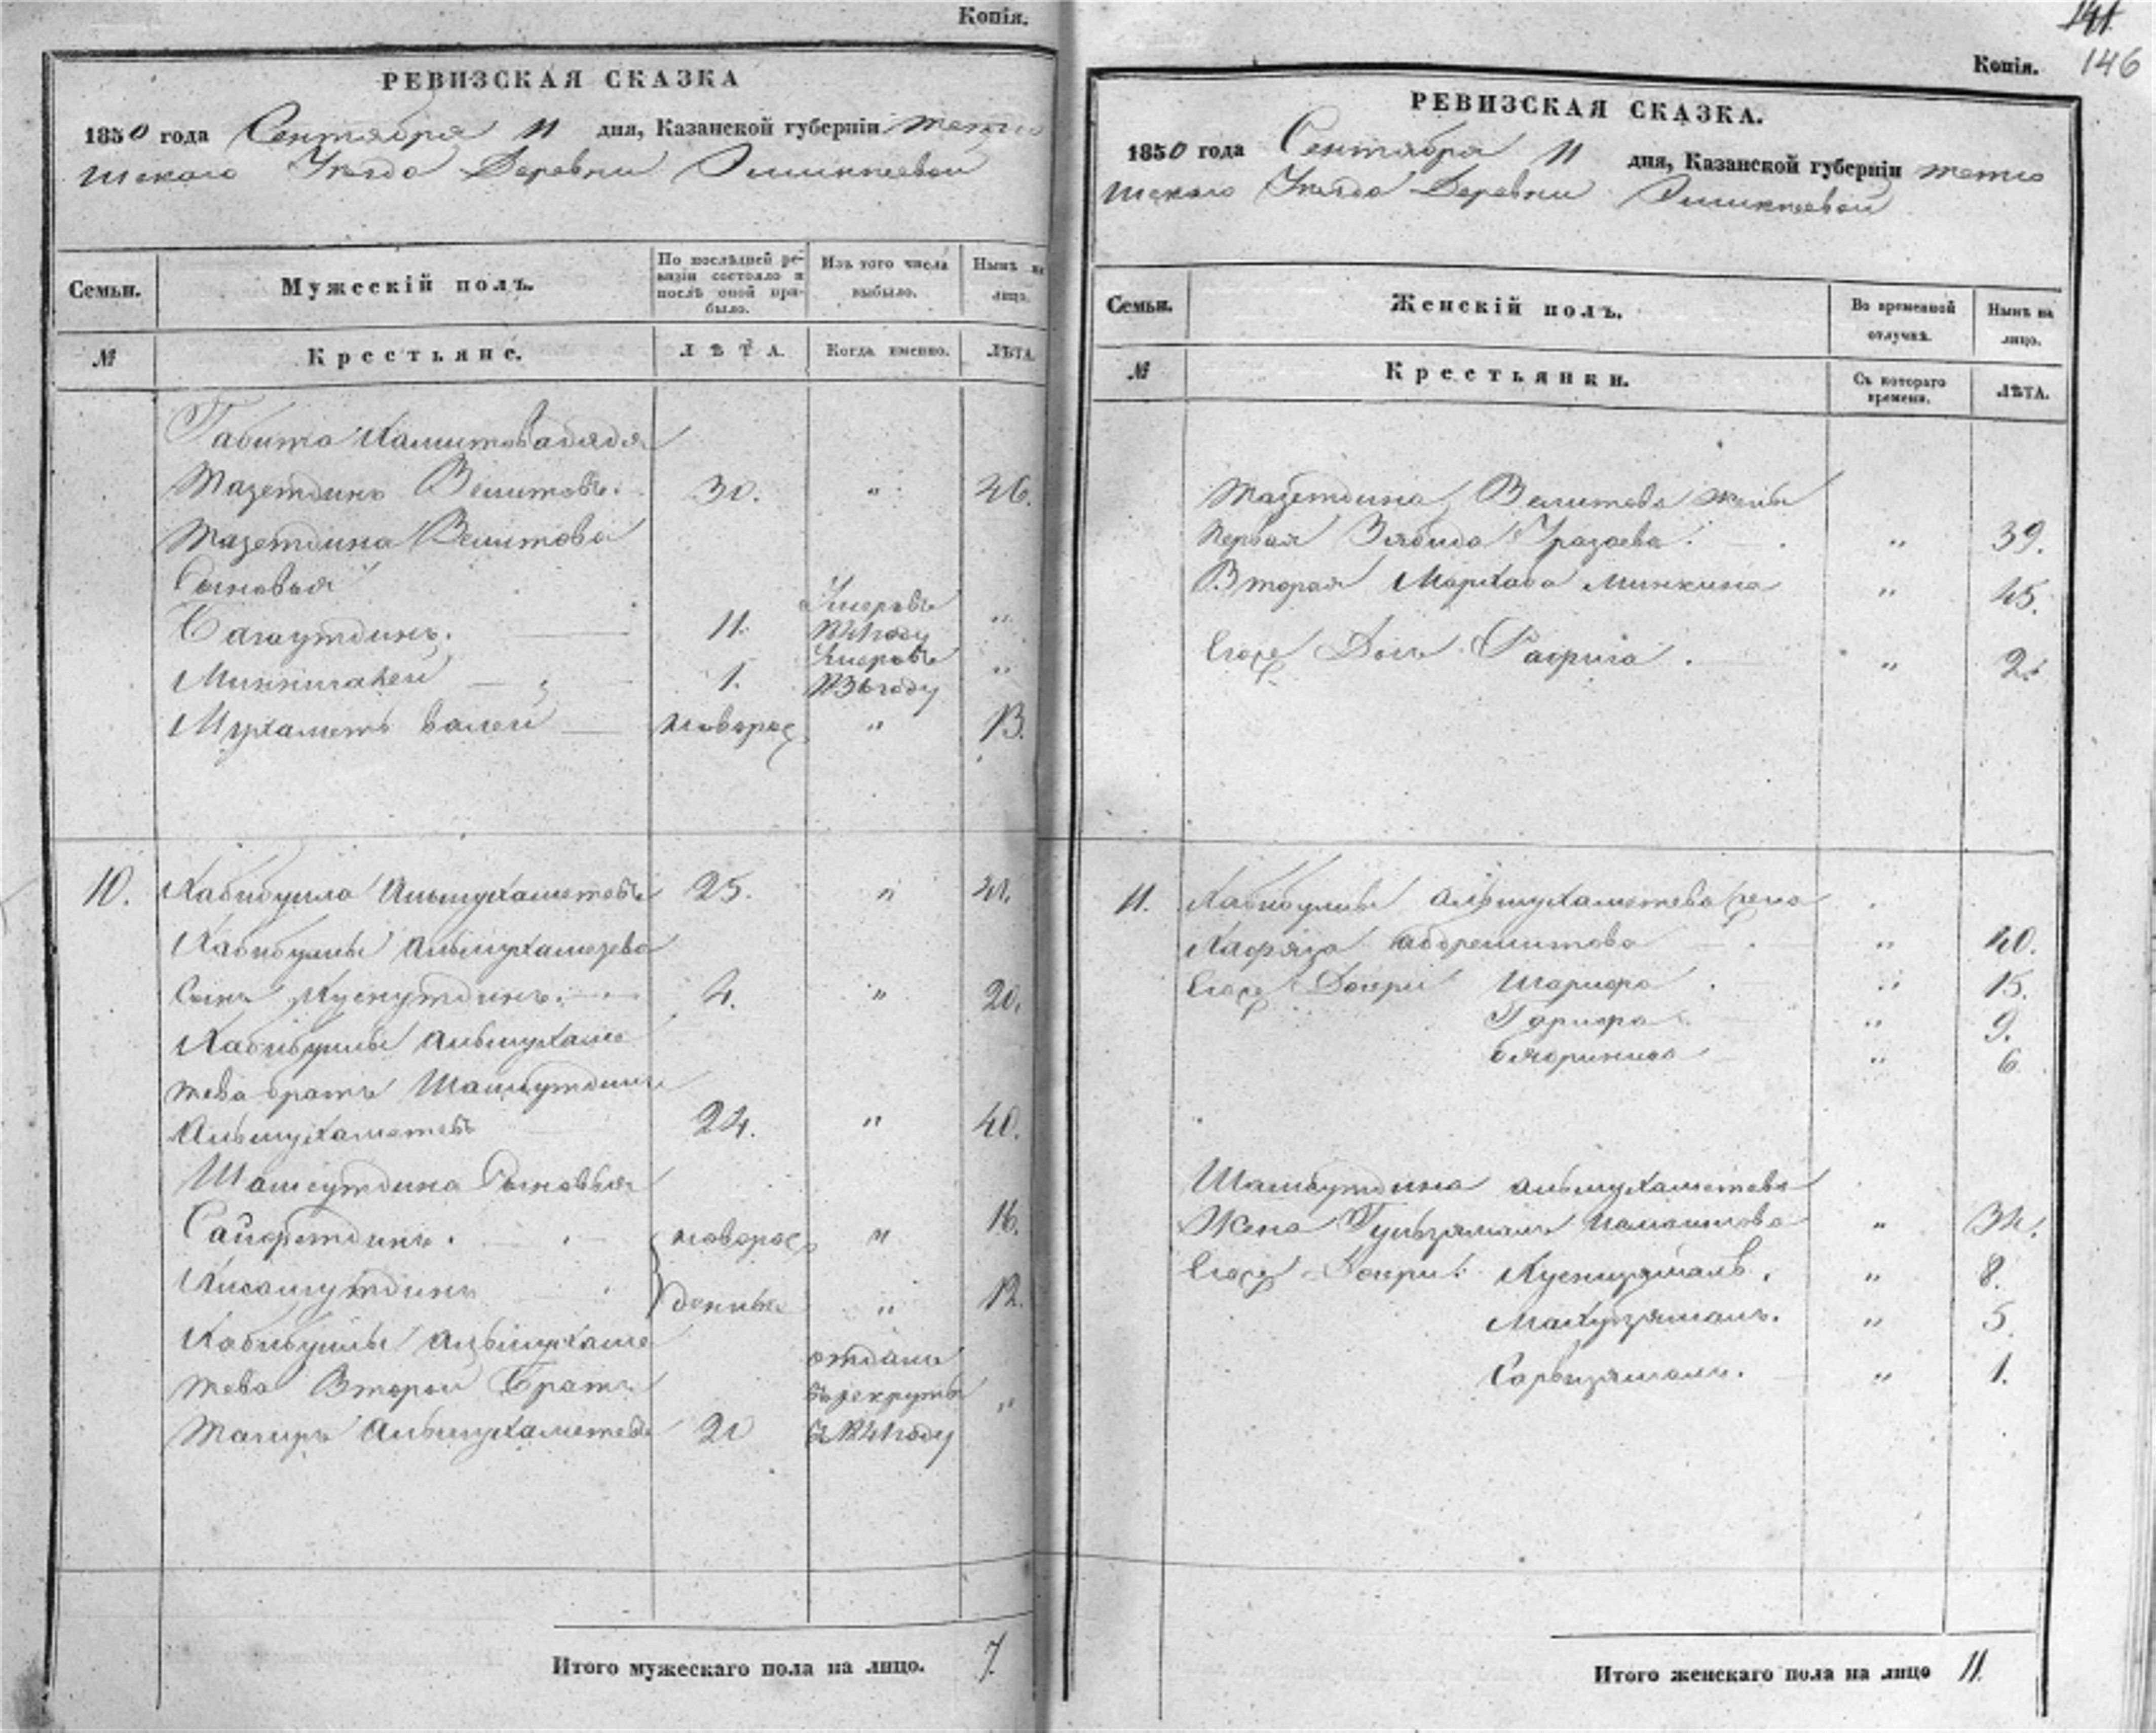 Копія.
РЕВИЗСКАЯ СКАЗКА
1850 года Сентября 11 дня, Казанской губерніи Тетю
шскаго Уѣзда Деревни
Семьи.
Мужескій полъ.
По послѣдней ре-
визіи состояло и
послѣ оной при-
было.
Изъ того числа
выбыло.
Нынѣ на
лицо.
№
Крестьяне.
ЛѢТА.
Когда именно.
ЛѢТА.
Габита Хамитова дядя
Мазетдинъ Велитовъ. 30. " 46.
Мазетдина Велитова
Сыновья
Багаутдинъ. 11. Умеръ въ году "
1. Умеръ въ году "
Мухаметъ Валей новорож " 13.
10. Хабибулла Альмухаметовъ 25. " 41.
Хабибуллы Альмухаметева
Сынъ Хуснутдинъ. 4. " 20.
Хабибуллы Альмухаме
тева братъ Шамсутдинъ
Альмухаметевъ 24. " 40.
Шамсутдина Сыновья
Сайфетдинъ. новорож " 16.
Хисамутдинъ денные " 12.
Хабибуллы Альмухаме
тева Второй Братъ
Тагиръ Альмухаметевъ 20 отданъ
въ рекруты "
въ году
Итого мужескаго пола на лицо. 7.
141
146
Копія.
РЕВИЗСКАЯ СКАЗКА.
1850 года Сентября 11 дня, Казанской губерніи Тетю
шскаго Уѣзда Деревни
Семьи.
Женскій полъ.
Во временной
отлучкѣ.
Нынѣ на
лицо.
№
Крестьянки.
Съ котораго
времени.
ЛѢТА.
Мазетдина Велитова жены
Первая Зябида Уразаева. " 39.
Вторая Мархаба Минкина " 45.
Его Дочь Рафига. " 2.
11. Хабибуллы Альмухаметева жена
Хафиза Абдрешитова " 40.
Его Дочери Шарифа. " 15.
Гарифа " 9.
" 6
Шамсутдина Альмухаметева
Жена Гульзямалъ " 34.
Его Дочери: Хуснизямалъ. " 8.
Махузямалъ. " 5.
Сарвизямалъ. " 1.
Итого женскаго пола на лицо 11.